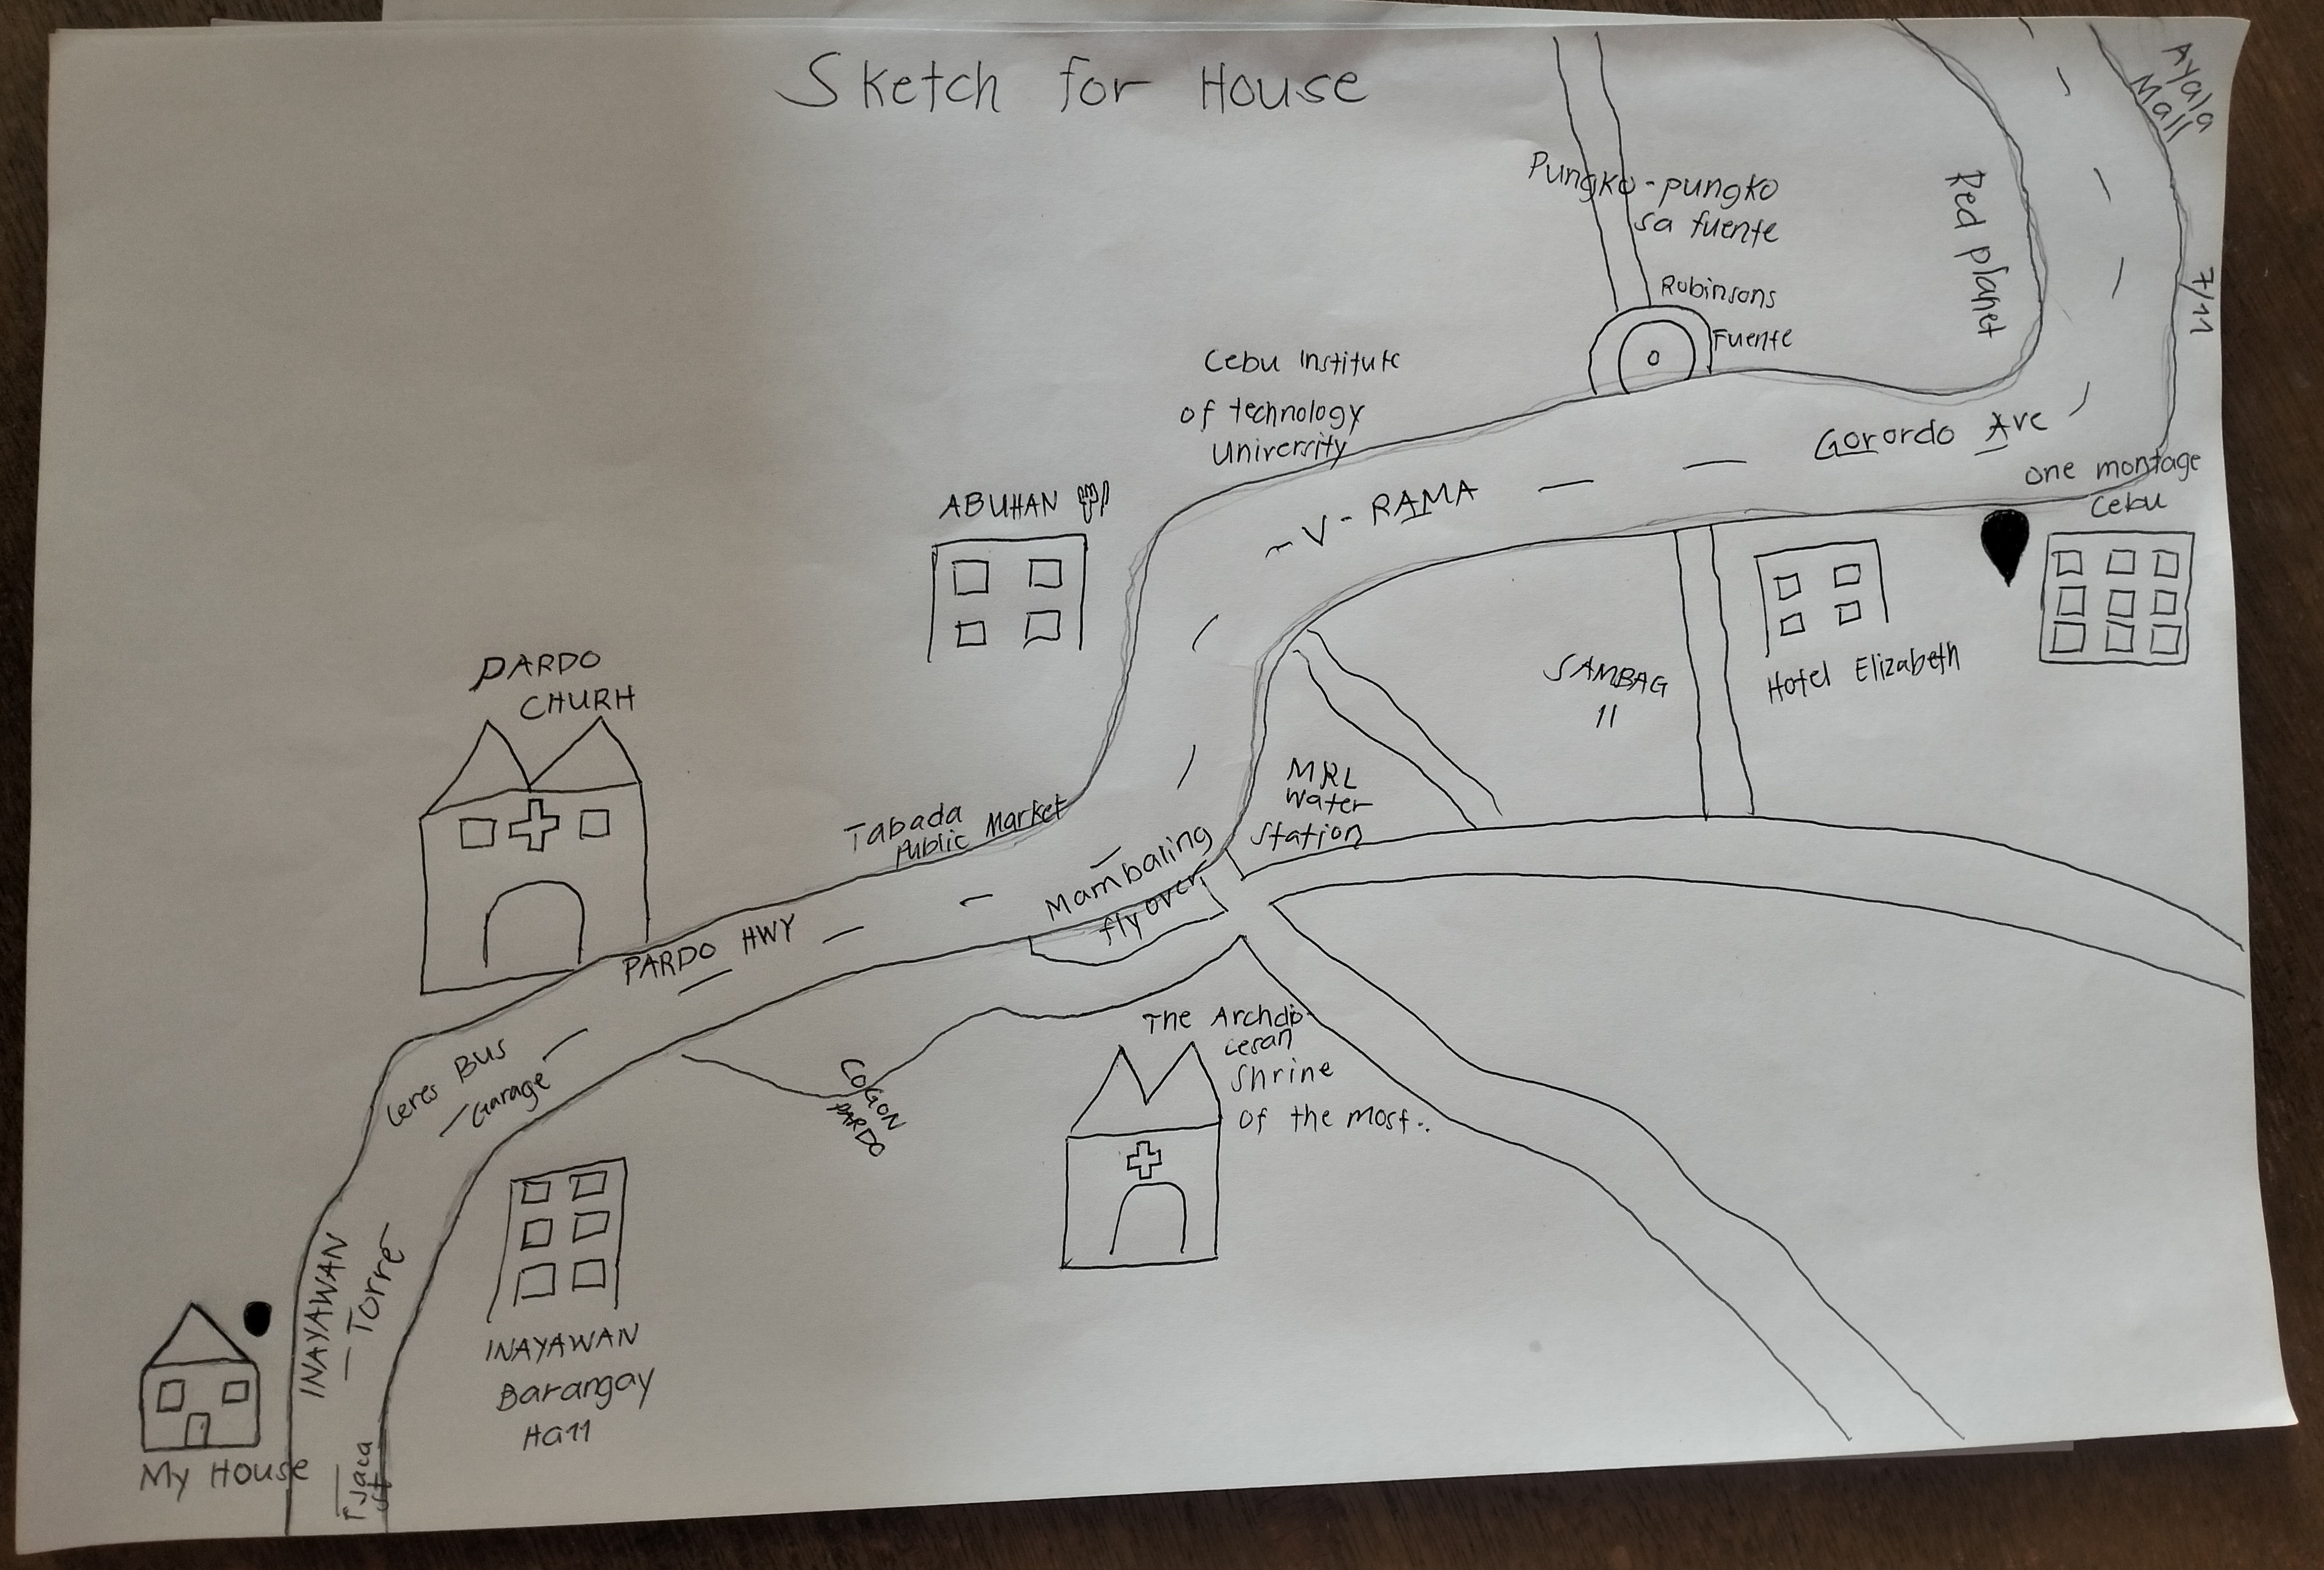 Sketch for House
Ayala
Mall
Pungko-pungko
sa fuente
Red planet
7/11
Robinsons
Fuente
Cebu Institute
of technology
University
Gorordo Ave
one montage
Cebu
ABUHAN
V-RAMA
PARDO
CHURH
SAMBAG
11
Hotel Elizabeth
MRL
Water
Station
Tabada
Public Market
Mambaling
fly over
PARDO HWY
The Archdio-
cesan
Shrine
of the most..
Ceres BUS
Garage
COGON
PARDO
INAYAWAN
Torre
INAYAWAN
Barangay
Hall
My House